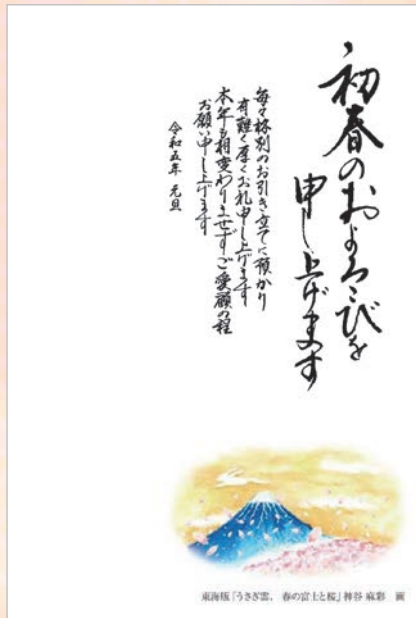 初春のおよろこびを
申し上げます
毎々格別のお引き立てに預かり
有難く厚くお礼申し上げます
本年も相変わりませずご愛顧の程
お願い申し上げます
令和五年 元旦
東海版「うさぎ雲、春の富士と桜」神谷 麻彩 画